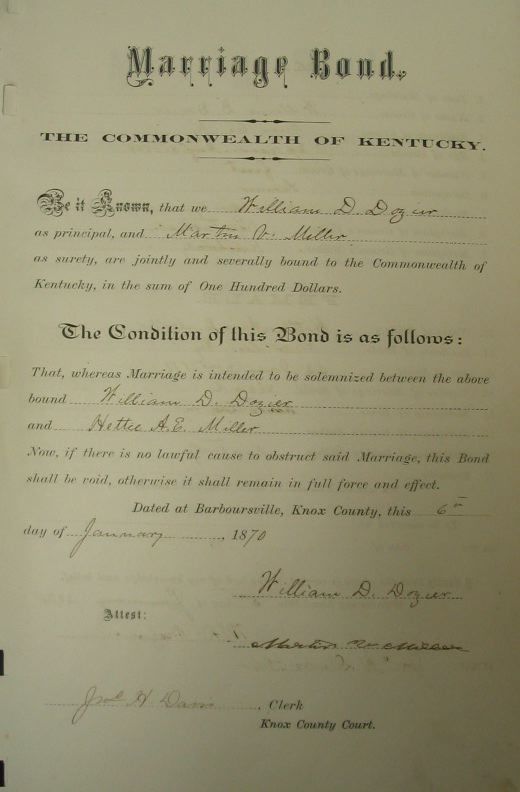 Marriage Bond,
THE COMMONWEALTH OF KENTUCKY.
Be it Known, that we William D. Dozier
as principal, and Martin V. Miller
as surety, are jointly and severally bound to the Commonwealth of
Kentucky, in the sum of One Hundred Dollars.
The Condition of this Bond is as follows:
That, whereas Marriage is intended to be solemnized between the above
bound William D. Dozier
and Hettie A. E. Miller
Now, if there is no lawful cause to obstruct said Marriage, this Bond
shall be void, otherwise it shall remain in full force and effect.
Dated at Barboursville, Knox County, this 6th
day of January, 1870
William D. Dozier
Attest:
Martin V. Miller
H Davis, Clerk
Knox County Court.